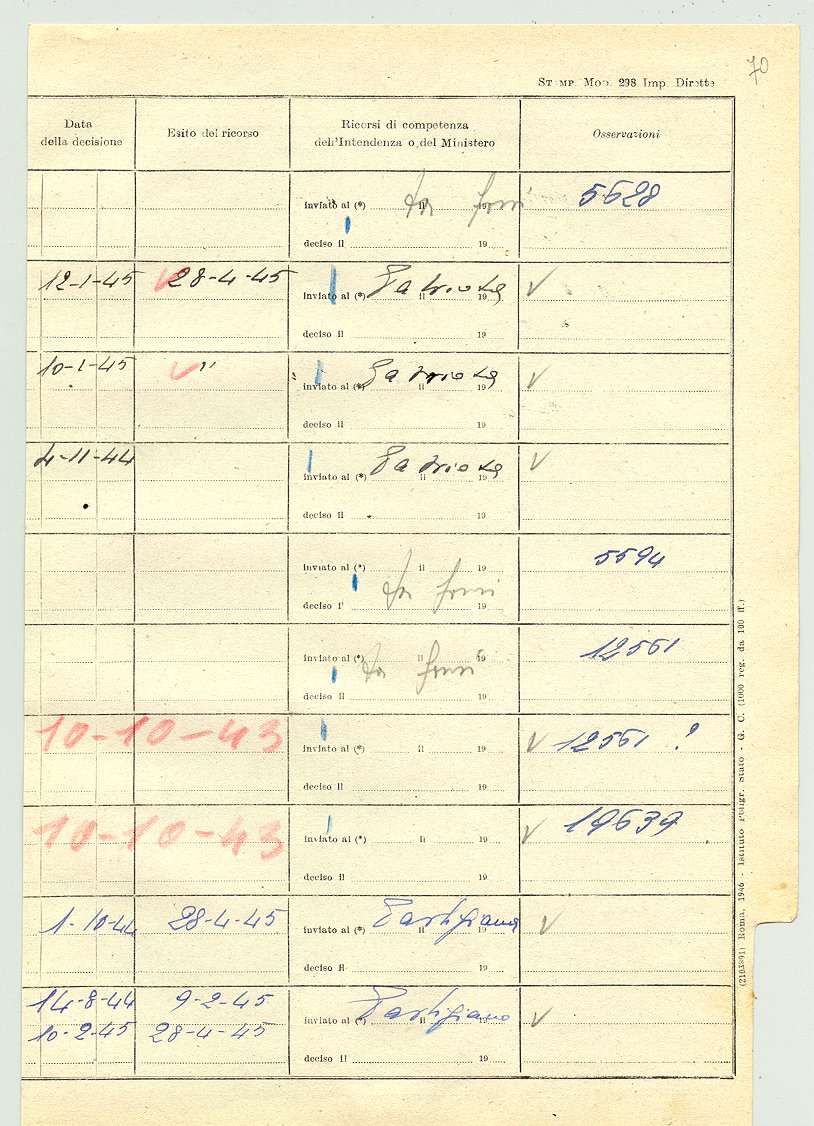 70
STAMP. MOD. 298 Imp. Dirette
Data della decisione
Esito del ricorso
Ricorsi di competenza dell'Intendenza o del Ministero
Osservazioni
inviato al (*) il 19 5628
deciso il 19
12-1-45 V 28-4-45 inviato al (*) Patriota il 19 V
deciso il 19
10-1-45 V " inviato al (*) Patriota il 19 V
deciso il 19
4-11-44 inviato al (*) Patriota il 19 V
deciso il 19
inviato al (*) il 19 5594
deciso il 19
inviato al (*) il 19 12561
deciso il 19
10-10-43 inviato al (*) il 19 V 12561 ?
deciso il 19
10-10-43 inviato al (*) il 19 V 19639
deciso il 19
1-10-44 28-4-45 inviato al (*) Partigiana il 19 V
deciso il 19
14-8-44 9-2-45
10-2-45 28-4-45 inviato al (*) Partigiano il 19 V
deciso il 19
(2103891) Roma, 1946 - Istituto Poligr. Stato - G. C. (1000 reg. da 100 ff.)